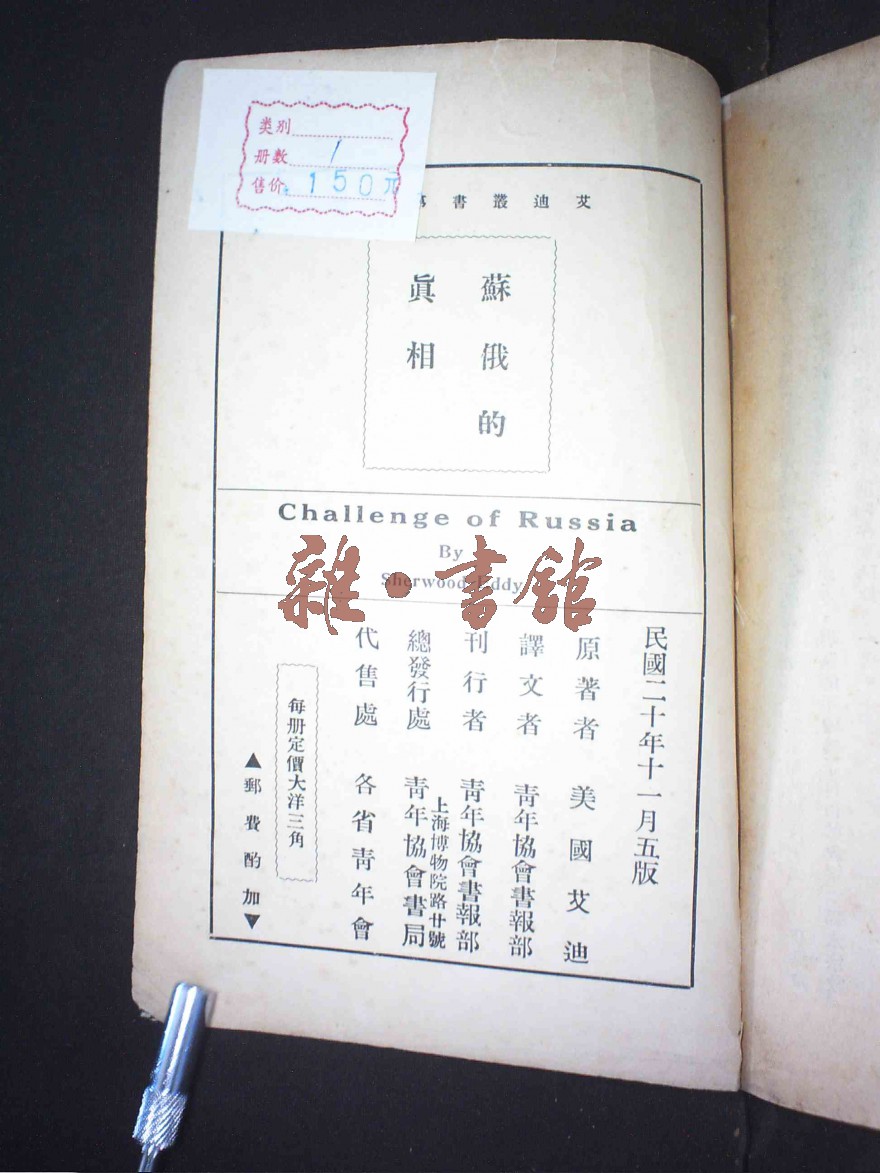 类别
册数 1
售价 150元
艾迪叢書第
蘇俄的
眞相
Challenge of Russia
By
Sherwood Eddy
雜·書館
民國二十年十一月五版
原著者 美國艾迪
譯文者 青年協會書報部
刊行者 青年協會書報部
上海博物院路廿號
總發行處 青年協會書局
代售處 各省青年會
每册定價大洋三角
▲郵費酌加▼